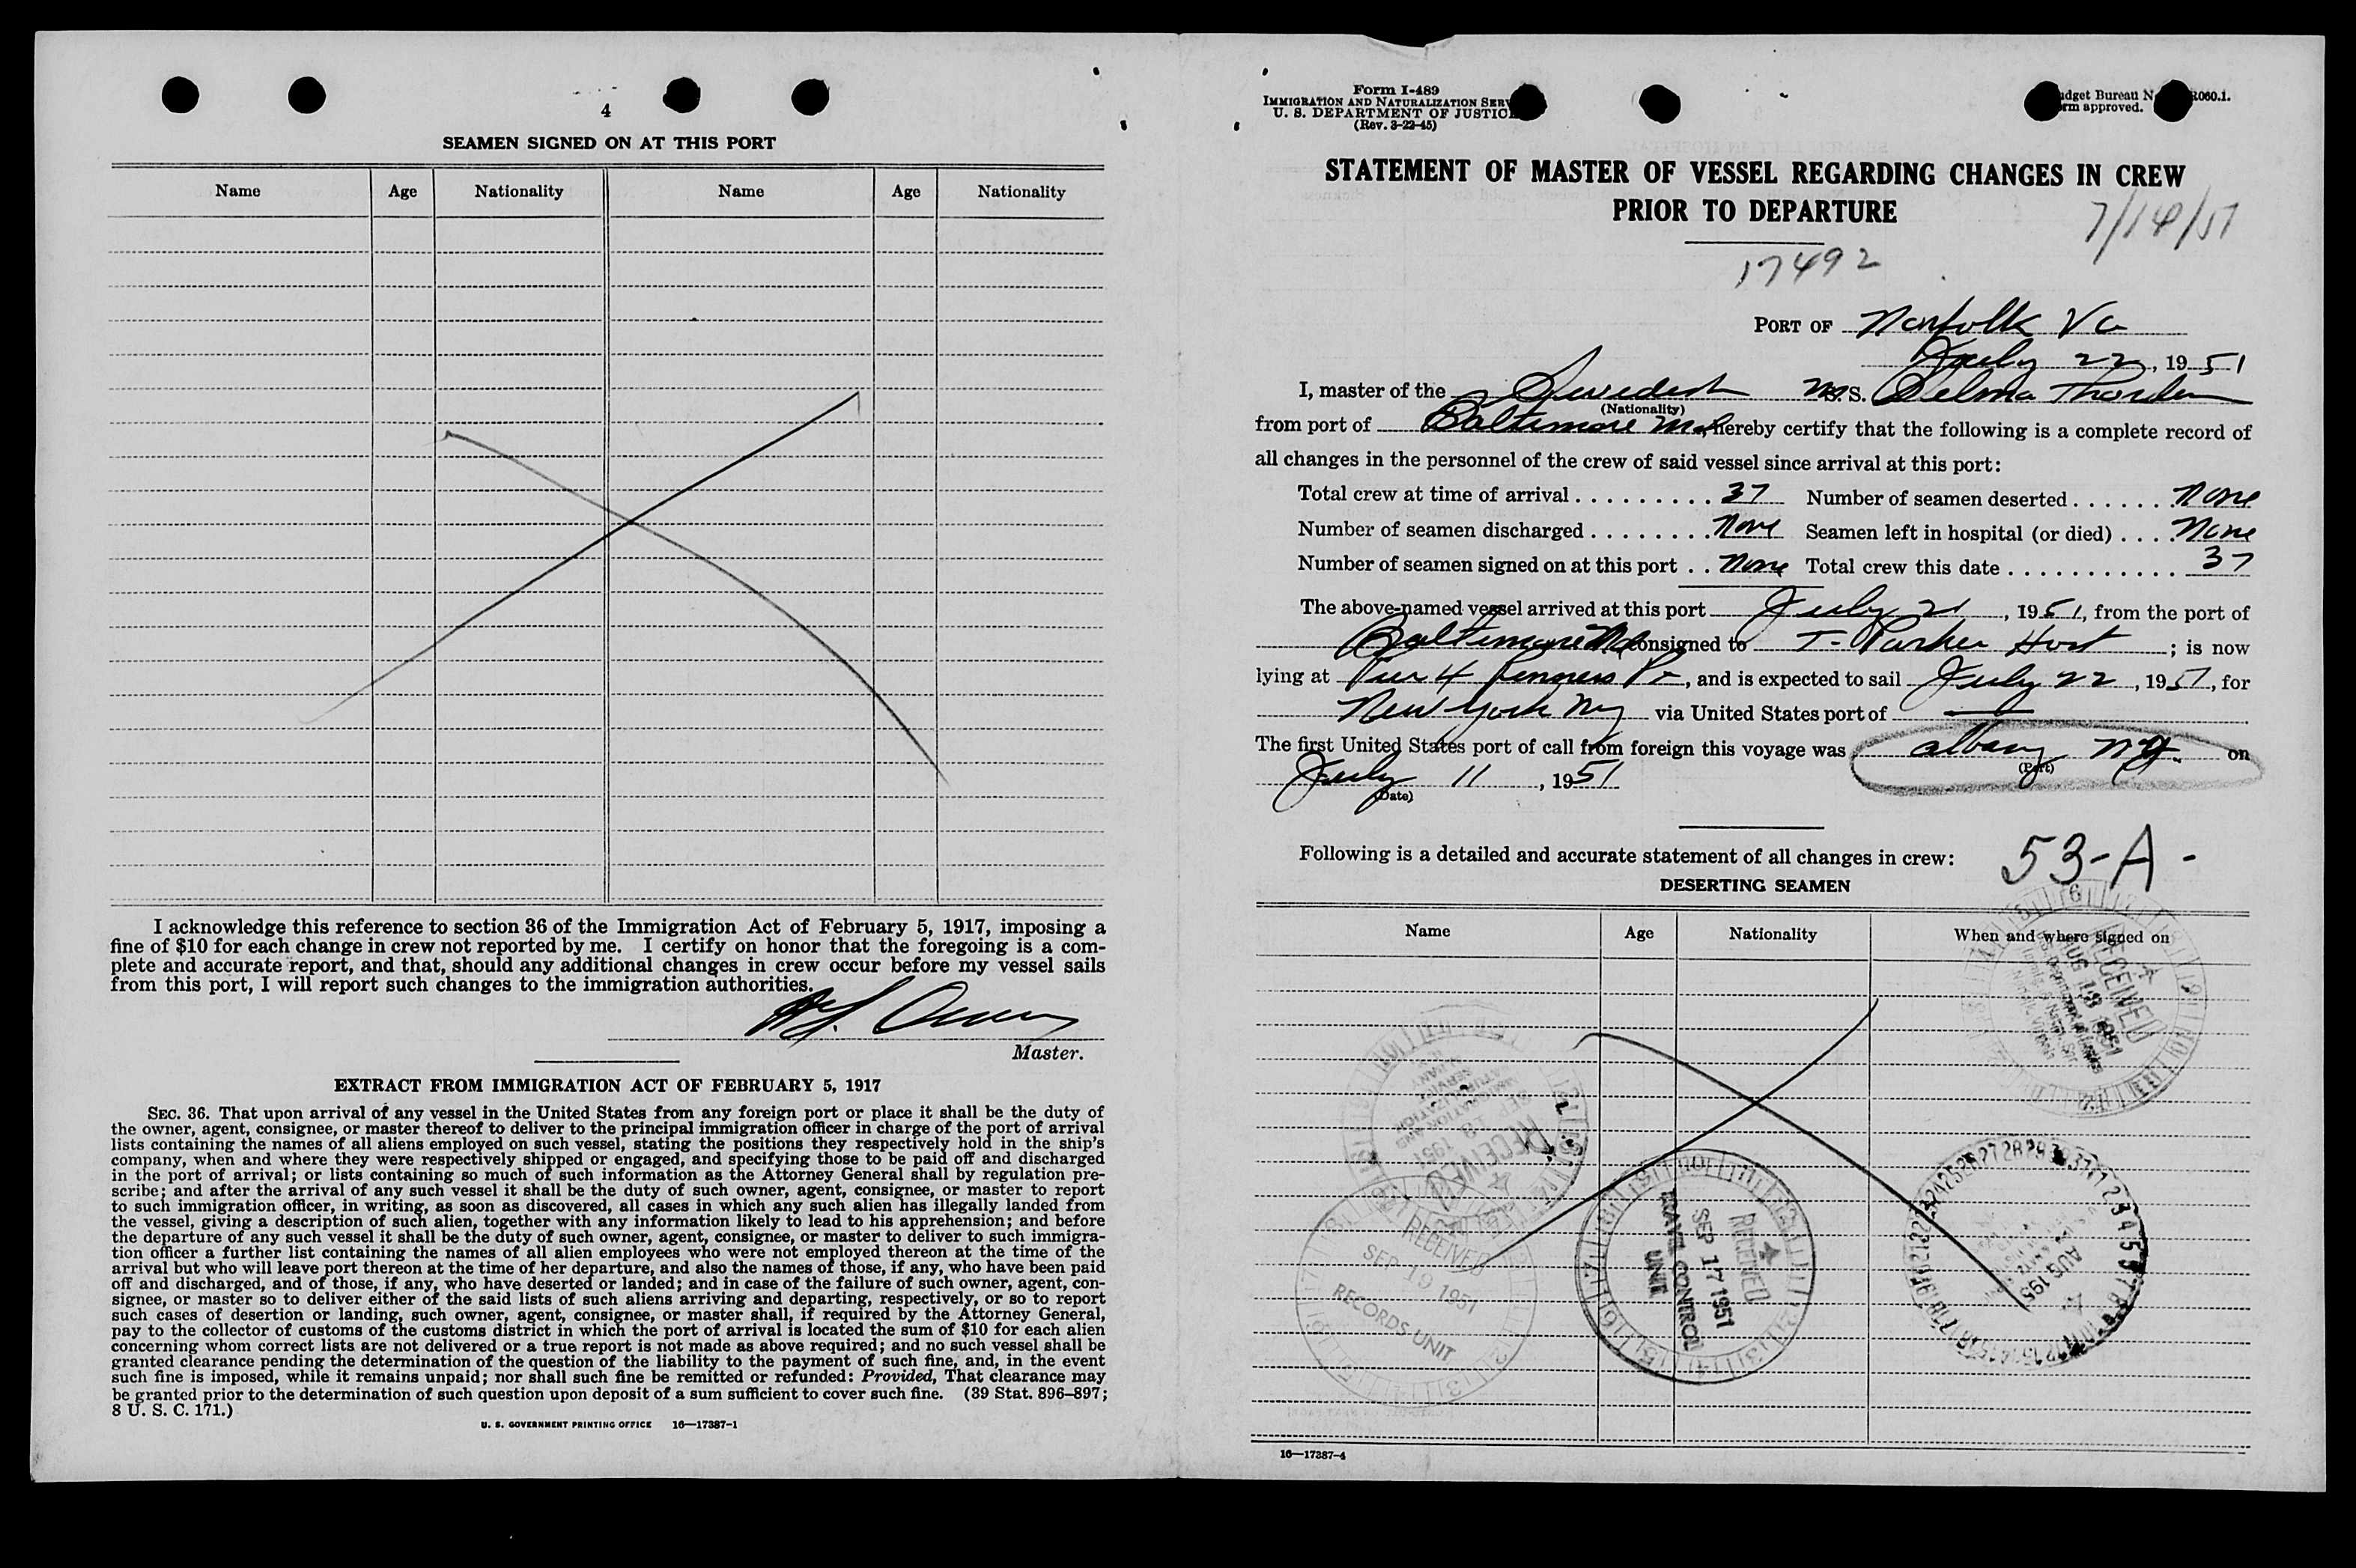 4
SEAMEN SIGNED ON AT THIS PORT
Name Age Nationality Name Age Nationality
I acknowledge this reference to section 36 of the Immigration Act of February 5, 1917, imposing a
fine of $10 for each change in crew not reported by me. I certify on honor that the foregoing is a com-
plete and accurate report, and that, should any additional changes in crew occur before my vessel sails
from this port, I will report such changes to the immigration authorities.
Master.
EXTRACT FROM IMMIGRATION ACT OF FEBRUARY 5, 1917
SEC. 36. That upon arrival of any vessel in the United States from any foreign port or place it shall be the duty of
the owner, agent, consignee, or master thereof to deliver to the principal immigration officer in charge of the port of arrival
lists containing the names of all aliens employed on such vessel, stating the positions they respectively hold in the ship's
company, when and where they were respectively shipped or engaged, and specifying those to be paid off and discharged
in the port of arrival; or lists containing so much of such information as the Attorney General shall by regulation pre-
scribe; and after the arrival of any such vessel it shall be the duty of such owner, agent, consignee, or master to report
to such immigration officer, in writing, as soon as discovered, all cases in which any such alien has illegally landed from
the vessel, giving a description of such alien, together with any information likely to lead to his apprehension; and before
the departure of any such vessel it shall be the duty of such owner, agent, consignee, or master to deliver to such immigra-
tion officer a further list containing the names of all alien employees who were not employed thereon at the time of the
arrival but who will leave port thereon at the time of her departure, and also the names of those, if any, who have been paid
off and discharged, and of those, if any, who have deserted or landed; and in case of the failure of such owner, agent, con-
signee, or master so to deliver either of the said lists of such aliens arriving and departing, respectively, or so to report
such cases of desertion or landing, such owner, agent, consignee, or master shall, if required by the Attorney General,
pay to the collector of customs of the customs district in which the port of arrival is located the sum of $10 for each alien
concerning whom correct lists are not delivered or a true report is not made as above required; and no such vessel shall be
granted clearance pending the determination of the question of the liability to the payment of such fine, and, in the event
such fine is imposed, while it remains unpaid; nor shall such fine be remitted or refunded: Provided, That clearance may
be granted prior to the determination of such question upon deposit of a sum sufficient to cover such fine. (39 Stat. 896–897;
8 U. S. C. 171.)
U. S. GOVERNMENT PRINTING OFFICE 16—17387-1
Form I-489
IMMIGRATION AND NATURALIZATION SERV
U. S. DEPARTMENT OF JUSTICE
(Rev. 3-22-45)
dget Bureau N R060.1.
rm approved.
STATEMENT OF MASTER OF VESSEL REGARDING CHANGES IN CREW
PRIOR TO DEPARTURE
7/14/51
17492
PORT OF Norfolk Va
July 22, 1951
I, master of the Swedish M.S. Selma Thorden
(Nationality)
from port of Baltimore Md, hereby certify that the following is a complete record of
all changes in the personnel of the crew of said vessel since arrival at this port:
Total crew at time of arrival 37 Number of seamen deserted None
Number of seamen discharged None Seamen left in hospital (or died) None
Number of seamen signed on at this port None Total crew this date 37
The above-named vessel arrived at this port July 21, 1951, from the port of
Baltimore Md consigned to T. Parker Host; is now
lying at Pier 4, and is expected to sail July 22, 1951, for
New York Ny via United States port of —
The first United States port of call from foreign this voyage was Albany N.Y. on
(Port)
July 11, 1951
(Date)
Following is a detailed and accurate statement of all changes in crew: 53-A-
DESERTING SEAMEN
Name Age Nationality When and where signed on
RECEIVED
AUG 18 1951
RECEIVED
SEP 18 1951
IMMIGRATION AND
NATURALIZATION
SERVICE
ALBANY
RECEIVED
SEP 19 1951
RECORDS UNIT
RECEIVED
SEP 17 1951
TRAVEL CONTROL
UNIT
AUG 195
16—17387-4